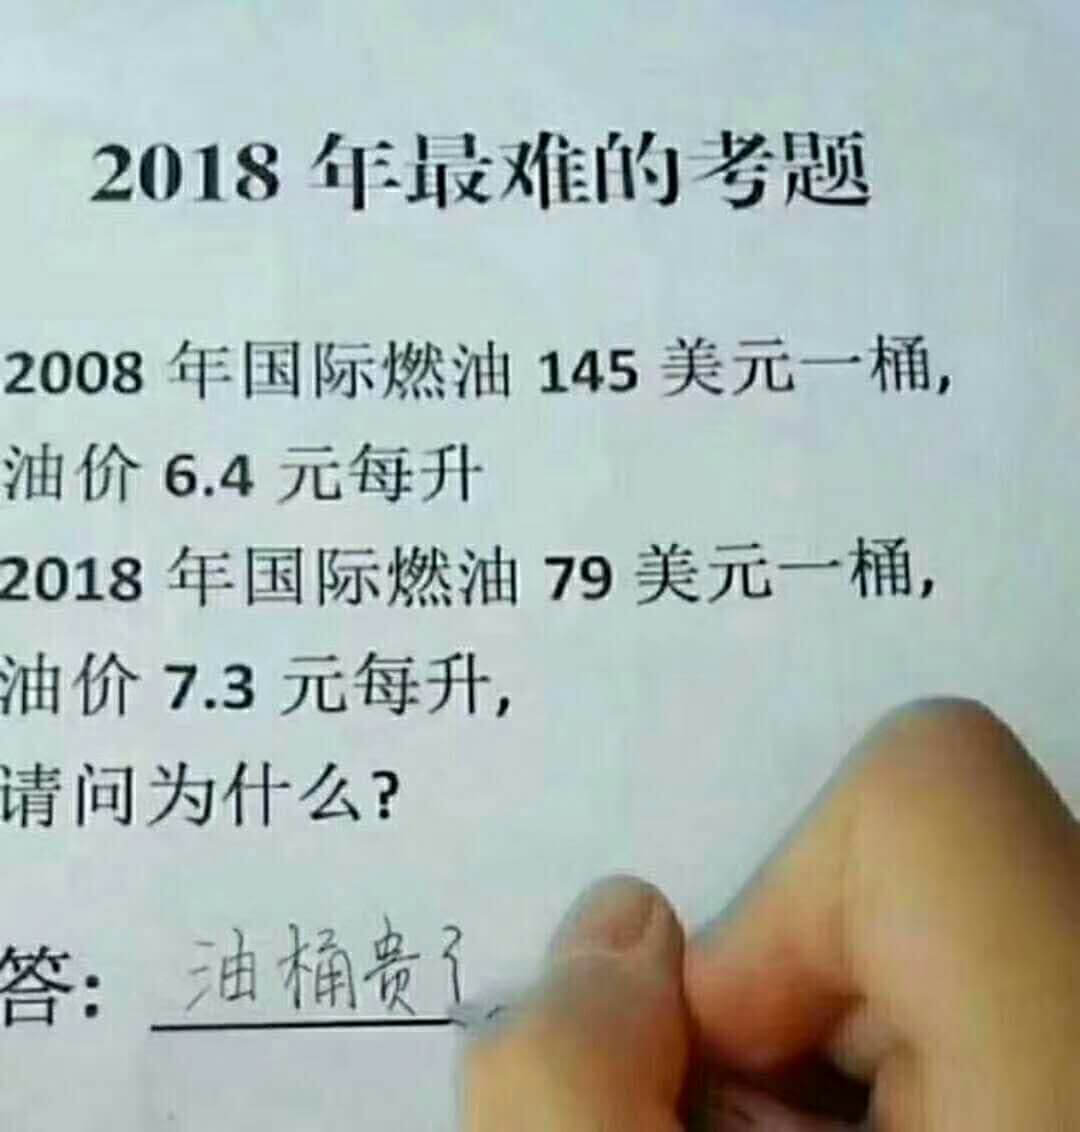 2018 年最难的考题
2008 年国际燃油 145 美元一桶,
油价 6.4 元每升
2018 年国际燃油 79 美元一桶,
油价 7.3 元每升,
请问为什么?
答: 油桶贵了